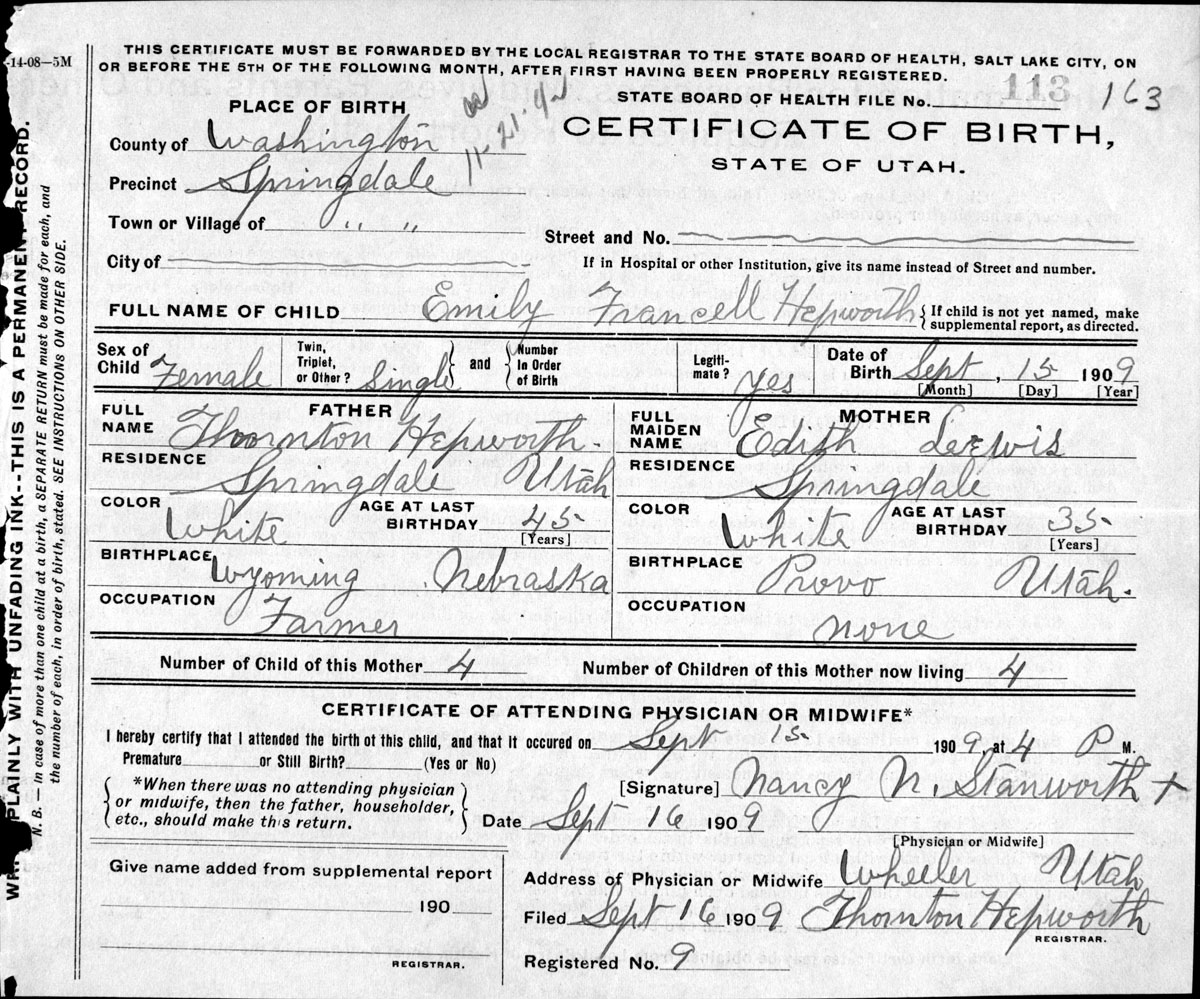 -14-08—5M
THIS CERTIFICATE MUST BE FORWARDED BY THE LOCAL REGISTRAR TO THE STATE BOARD OF HEALTH, SALT LAKE CITY, ON
OR BEFORE THE 5TH OF THE FOLLOWING MONTH, AFTER FIRST HAVING BEEN PROPERLY REGISTERED.
PLACE OF BIRTH
STATE BOARD OF HEALTH FILE No. 113 163
CERTIFICATE OF BIRTH,
STATE OF UTAH.
County of Washington
Precinct Springdale
Town or Village of " "
Street and No.
City of
If in Hospital or other Institution, give its name instead of Street and number.
FULL NAME OF CHILD Emily Francell Hepworth { If child is not yet named, make
supplemental report, as directed.
Sex of Child Female Twin, Triplet, or Other? Single and Number In Order of Birth Legiti- mate? yes Date of Birth Sept, 15 1909
[Month] [Day] [Year]
FATHER
FULL NAME Thornton Hepworth.
RESIDENCE Springdale Utah
COLOR White AGE AT LAST BIRTHDAY 45
[Years]
BIRTHPLACE Wyoming Nebraska
OCCUPATION Farmer
MOTHER
FULL MAIDEN NAME Edith Lewis
RESIDENCE Springdale
COLOR White AGE AT LAST BIRTHDAY 35
[Years]
BIRTHPLACE Provo Utah.
OCCUPATION none
Number of Child of this Mother 4 Number of Children of this Mother now living 4
CERTIFICATE OF ATTENDING PHYSICIAN OR MIDWIFE*
I hereby certify that I attended the birth of this child, and that it occured on Sept 15 1909, at 4 P M.
Premature or Still Birth? (Yes or No)
*When there was no attending physician
or midwife, then the father, householder,
etc., should make this return.
[Signature] Nancy N. Stanworth +
Date Sept 16 1909
[Physician or Midwife]
Give name added from supplemental report
190
REGISTRAR.
Address of Physician or Midwife Wheeler Utah
Filed Sept 16 1909 Thornton Hepworth
REGISTRAR.
Registered No. 9
PLAINLY WITH UNFADING INK--THIS IS A PERMANENT RECORD.
N. B. — In case of more than one child at a birth, a SEPARATE RETURN must be made for each, and
the number of each, in order of birth, stated. SEE INSTRUCTIONS ON OTHER SIDE.